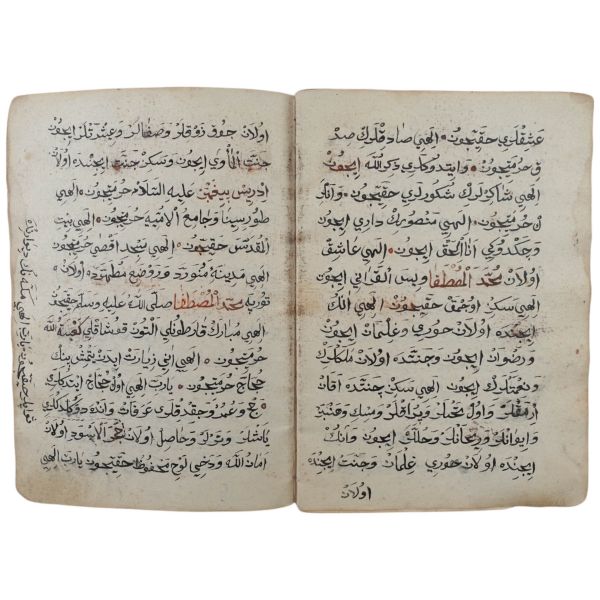 عشقلري حقيچون • الهي صادقلرك صد
ق حرمتيچون • وايتدوكلري ذكر الله ايچون
الهي شاكرلرك شكورلري حقيچون • وانلر
ك حرمتيچون • الهي منصورك داري ايچون
وچكدوكي انا الحق ايچون • الهي عاشق
اولان محمد المصطفا ويس القراني ايچون
الهي سكز اوچمق حقيچون الهي انك
ايچنده اولان حوري وغلمان ايچون
ورضوان ايچون وجنتده اولان ملكلرك
ونعمتلرك ايچون • الهي سكز جنتده اقان
ارمقلر واول نخللر ويپراقلر ومسك وعنبر
وايوانلرك وريحانلرك وحللك ايچون وانك
ايچنده اولان حوري غلمان وجنت ايچنده
اولان
اولان چوق ذوقلر وصفالر وعشرتلر ايچون
جنت المأوى ايچون وسكز جنت ايچنده اولان
ادريس پيغمبر عليه السلام حرمتيچون الهي
طور سينا وجامع الامية حرمتيچون • الهي بيت
المقدس حقيچون • الهي مسجد اقصى حرمتيچون
الهي مدينه منوره وروضه مطهره ده اولان
توربه محمد المصطفا صلى الله عليه وسلم حقيچون
الهي مبارك قلر طونلي التون قوشاقلي كعبة الله
حرمتيچون • الهي اني زيارت ايدن يتمش بيك
حجاج حرمتيچون • يا رب الهي اول حجاج ايتدكلري
حج وعمره حقيچون عرفات وانده دوكدكلري
ياشلر وحاصل اولان حجر الاسود اولان
امان الله ودخي لوح محفوظ حقيچون يا رب الهي